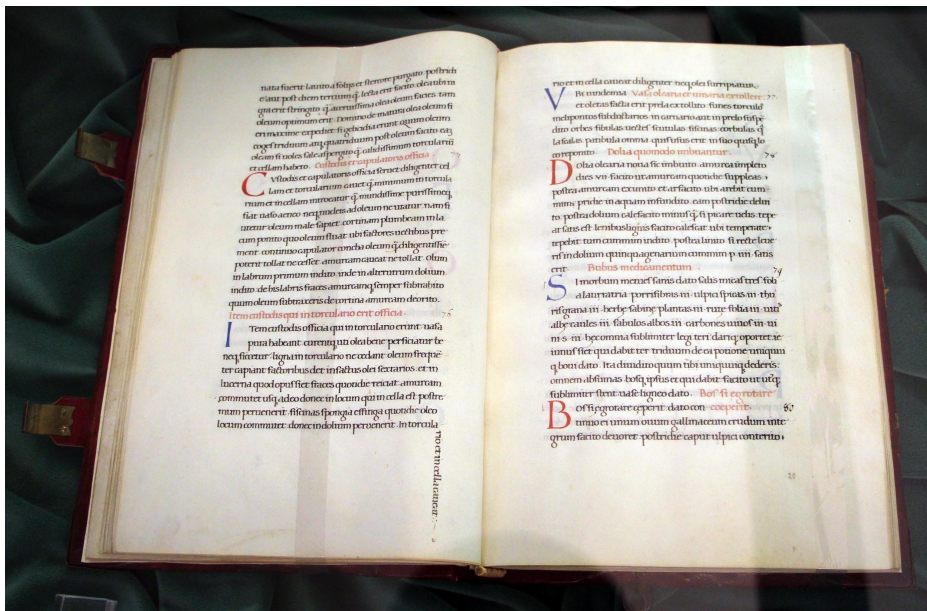 nata fuerit lauito a foliis et stercore purgato postridi
e aut post diem tertium q̃ lecta erit facito olea ubi ni
gra erit stringito q̃ acerrissima olea oleum facies tam
oleum optimum erit Domino de matura olea oleum fi
eri maxime expediet si gelicidia erunt quum oleum
coges triduum atq̃ quatriduum post oleum facito eaq̃
oleam si uoles sale aspergito q̃ calidissimum torculariũ
et cellam habeto. Custodis et capulatoris officia
Custodis et capulatoris officia seruet diligenter cel
lam et torcularium caueat q̃ minimum in torcula
rium et in cellam introeatur q̃ mundissime purissimeq̃
fiat uaso aeneo neq̃ nucleis ad oleum ne utatur. nam si
utetur oleum male sapiet cortinam plumbeam in la
cum ponito quo oleum fluat ubi factores uectibus pre
ment continuo capulator concha oleum q̃ diligentissi-
poterit tollat ne cesset amurcam caueat ne tollat. Olum
in labrum primum indito inde in alterum dolium
indito. de his labris fraces amurcamq̃ semper subtrahito
quum oleum subtraxeris de cortina amurcam deorito.
Item custodis qui in torculario erit officia. 76
Item custodis officia qui in torculario erunt uasa
pura habeant curent q̃ uti olea bene perficiatur be
neq̃ siccetur ligna in torculario ne cedant oleum freque-
ter capiant factoribus det in factus olei sextarios. et in
lucerna quod opus siet fraces quotidie reiciat amurcam
commutet usq̃ adeo donec in locum qui in cella est postre-
mum peruenerit. fiscinas spongia effinga quotidie oleo
locum commutet donec in dolium peruenerit. In torcula
rio et in cella caueat
rio et in cella caueat diligenter neq̃ olei surripiatur.
Vbi uindemia Vasa olearia et uinaria extollere 77
et oletas facta erit prela extollito funes torculos
medipontos subductarios in carnario aut in prelo suspe-
dito orbes fibulas uectes scutulas fiscinas corbulas q̃
lascalas patibula omnia quis usus erit in suo quisq̃ lo
co reponito Dolia quomodo imbuantur. 78
Dolia olearia noua sic imbuito amurca impleto
dies VII facito ut amurcam quotidie suppleas.
postea amurcam eximito et arfacito ubi arebit cum
minis pridie in aquam infundito. eam postridie delui
to. postea dolium calefacito minus q̃ si picare uelis. tepe
at satis est. lenibus lignis facito calescat. ubi temperate
tepebit tum cummim indito. postea linito. si recte leue
ris in dolium quinquagenarium cummim p. IIII. satis
erit Bobus medicamentum 79
Si morbum metues sanis dato salis micas tres foli
a laurea tria. porri fibras III ulpici spicas III thu
ris grana III. herbe sabine plantas III rute folia III uiti
albe caules III fabulos albos III carbones uiuos III ui
ni S III hec omnia sublimiter legi teri dariq̃ oportet ie
iunus siet qui dabit per triduum de ea potione unicuiq̃
q̃ boui dato. Ita diuidito quum tribi unicuiq̃ dederis.
omnem absumas. bosq̃ ipsus et qui dabit facito ut utq̃
sublimiter stent uase ligneo dato Bos si egrotare
Bos si egrotare ceperit dato con- coeperit. 80
tinuo ei unum ouum gallinaceum crudum inte
grum facito deuoret postridie caput ulpici conterito.